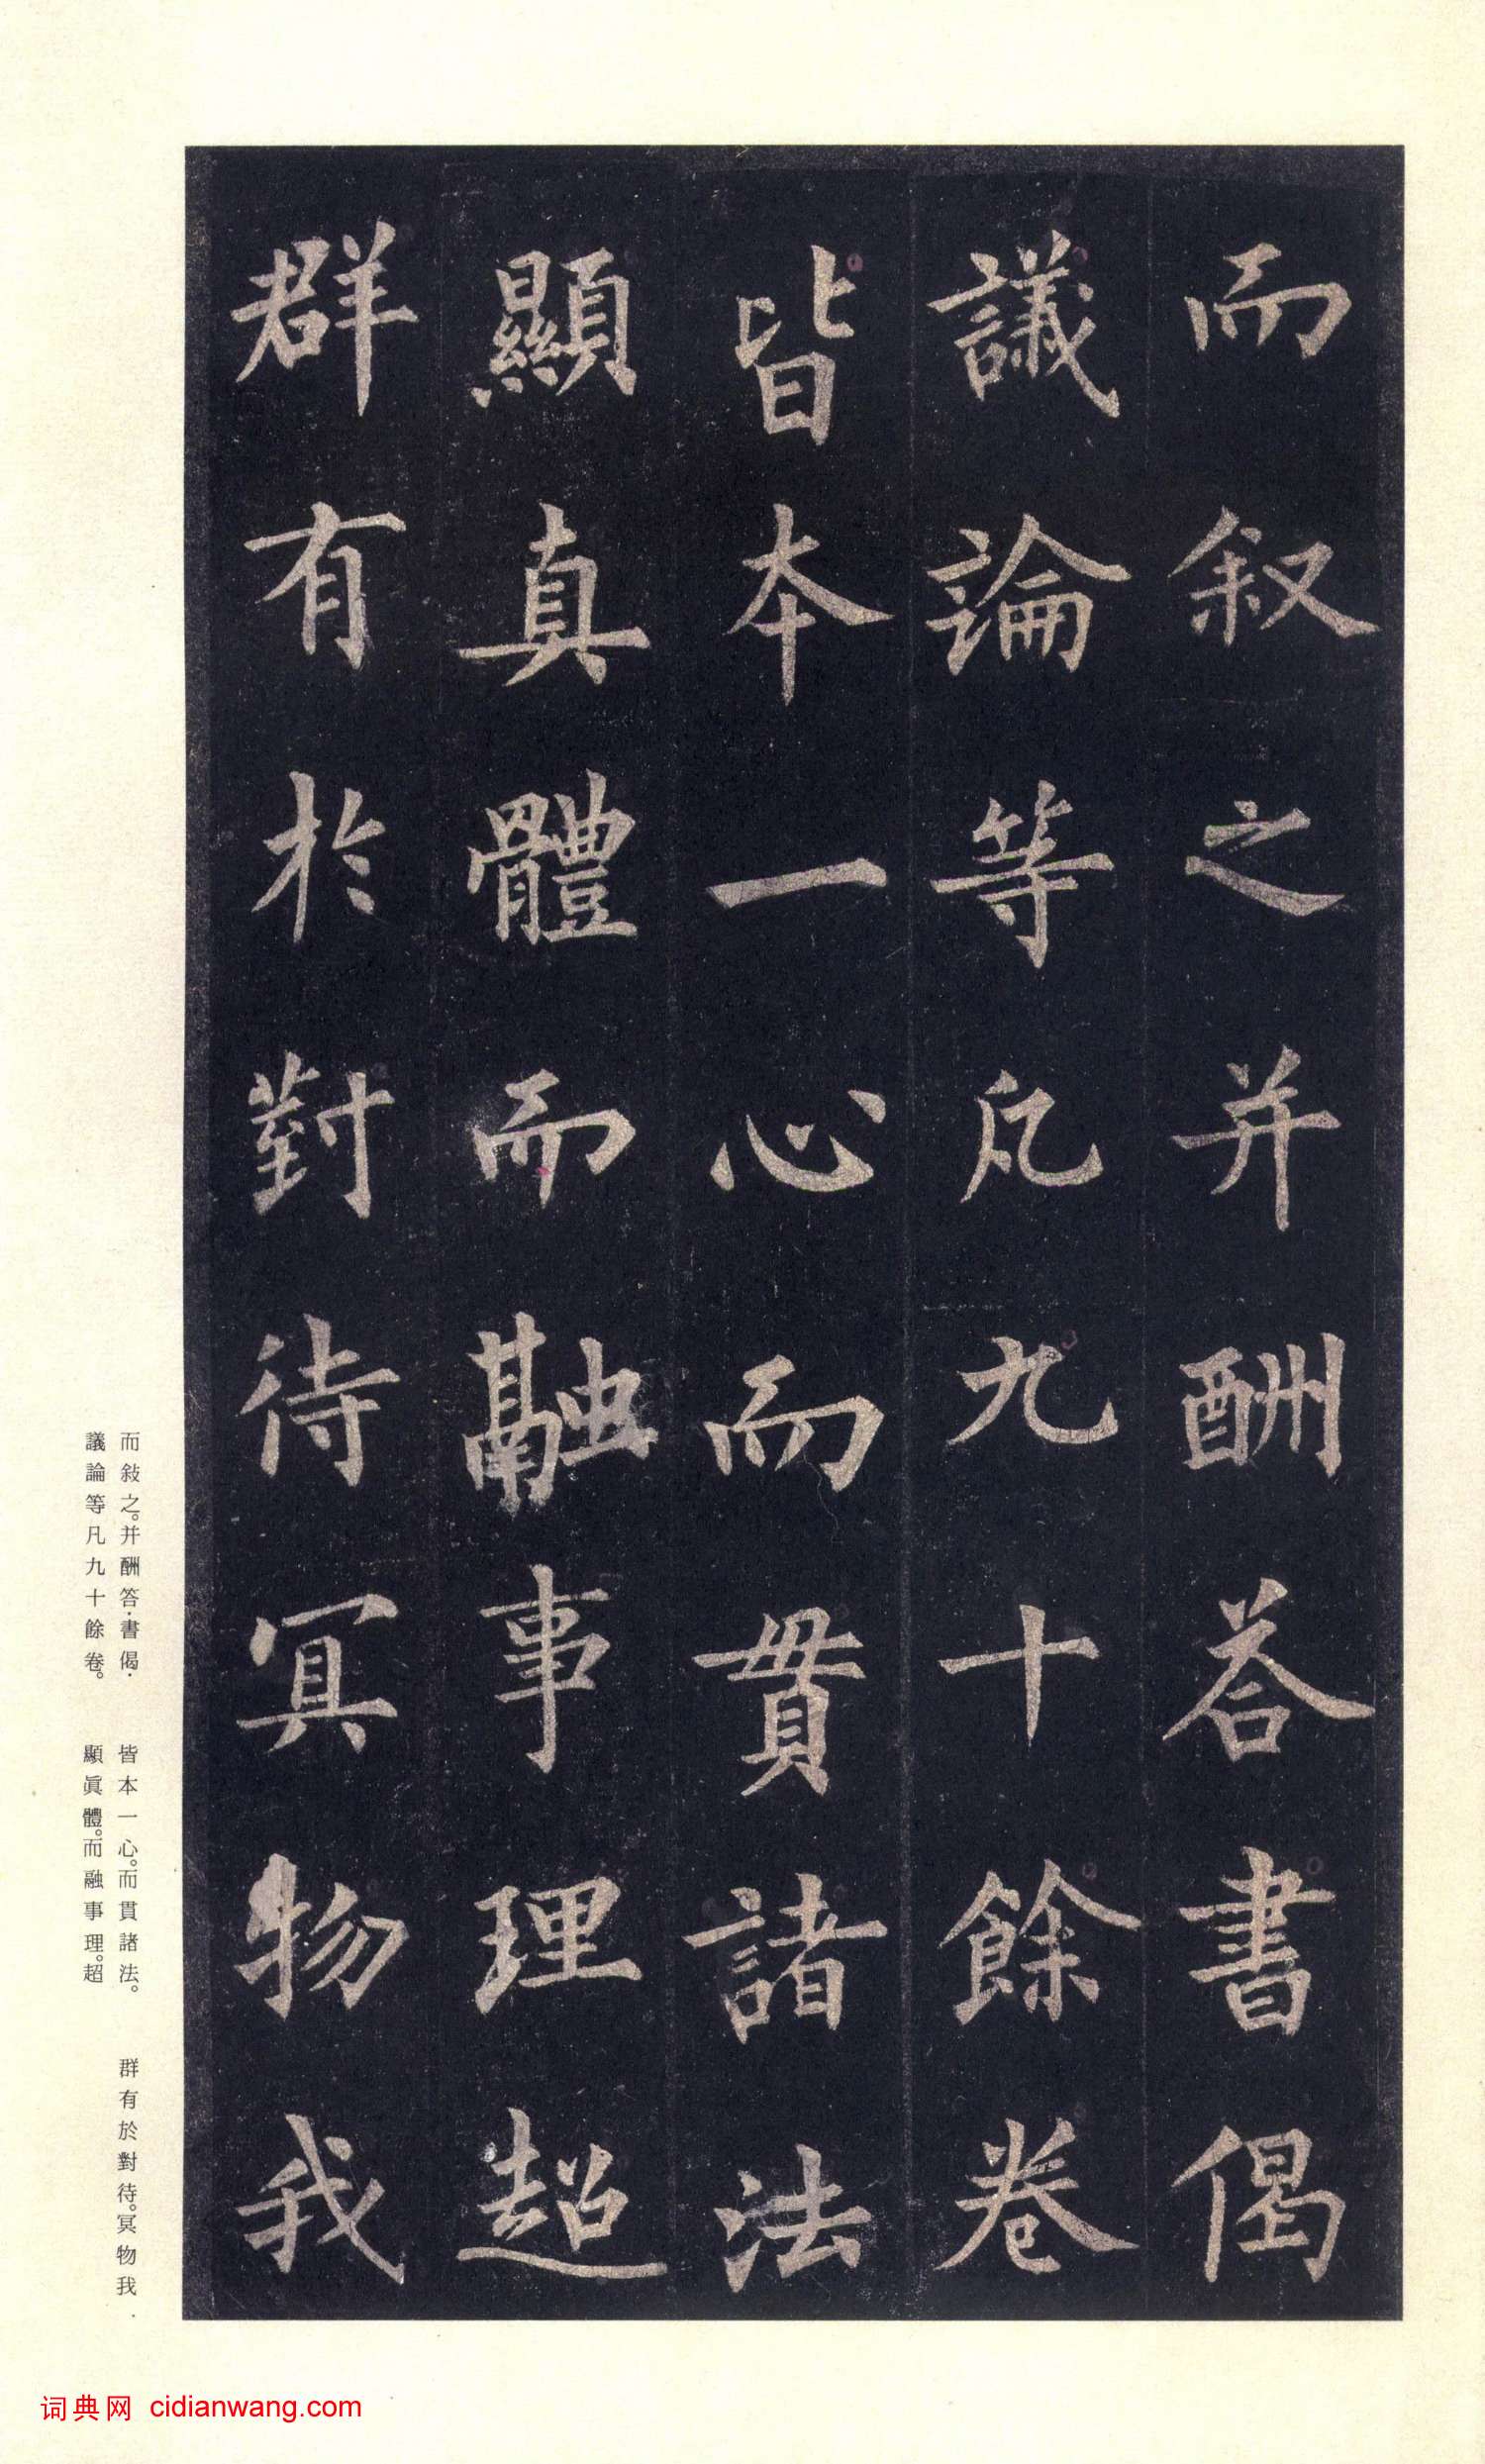 而叙之并酬荅書偈
議論等凡九十餘卷
皆本一心而貫諸法
顯真體而融事理超
群有於對待冥物我
而敍之。并酬答·書偈·
議論等凡九十餘卷。
皆本一心。而貫諸法。
顯眞體。而融事理。超
群有於對待。冥物我·
词典网 cidianwang.com